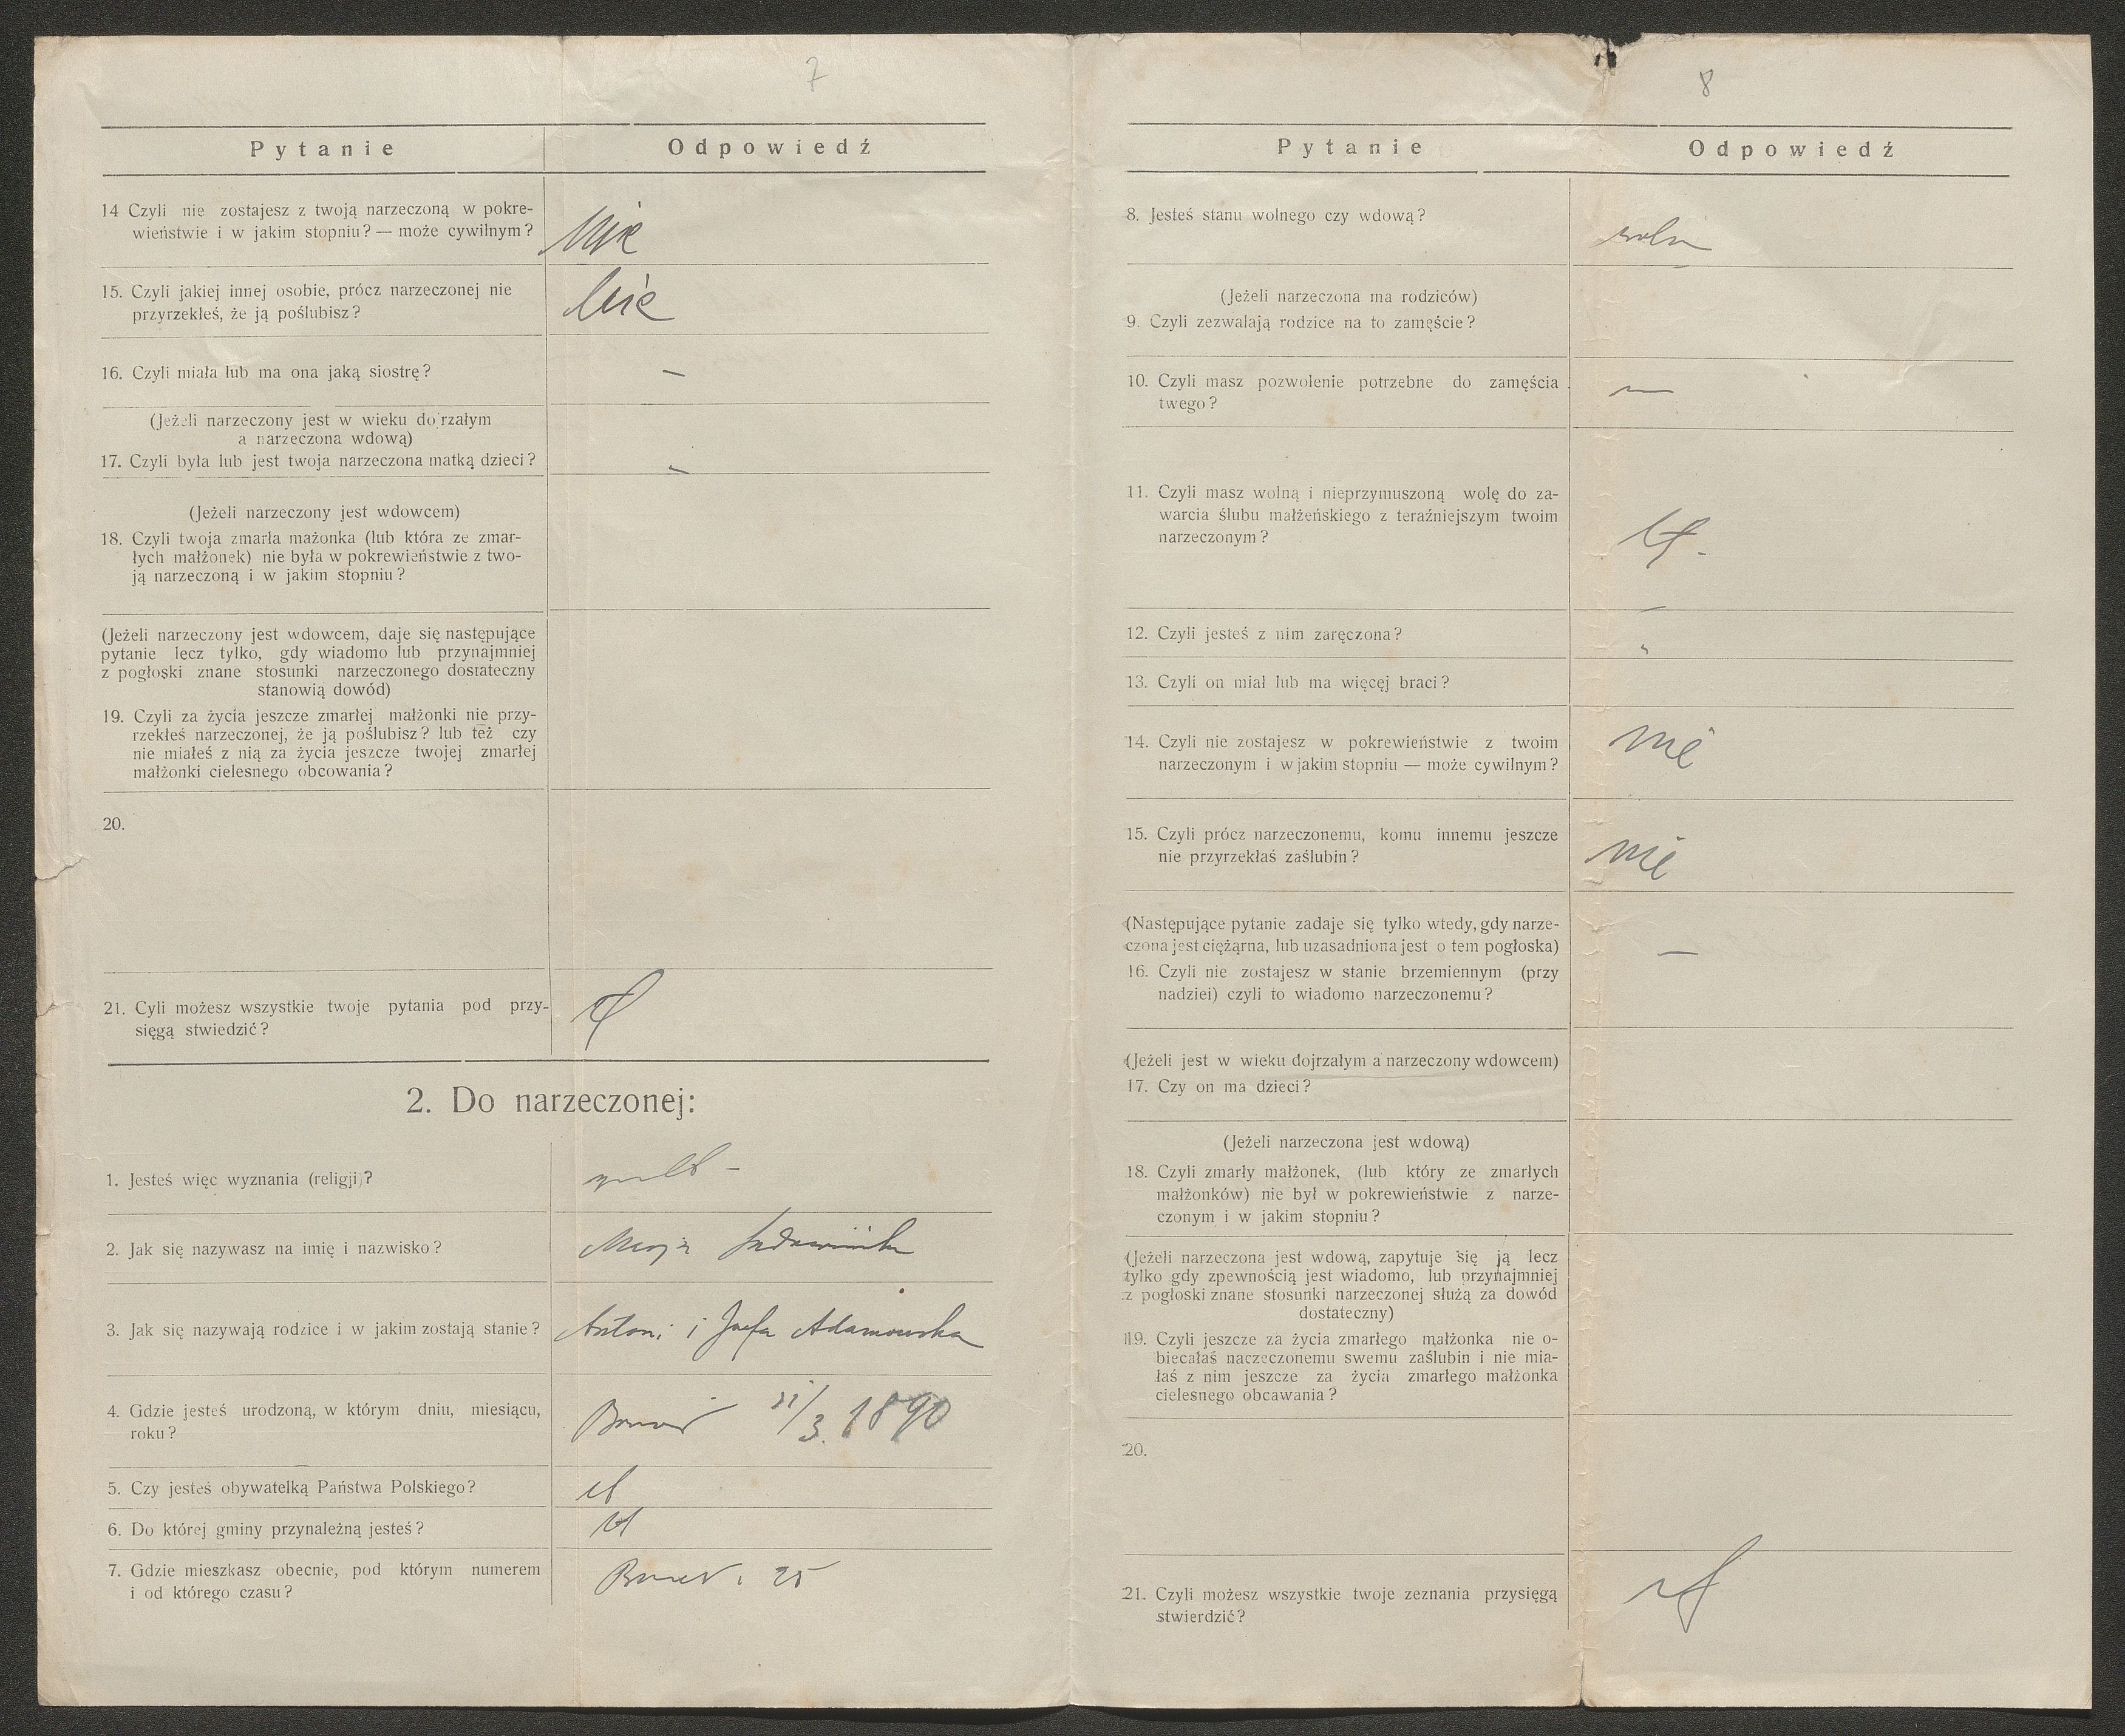 7
Pytanie
Odpowiedź
14 Czyli nie zostajesz z twoją narzeczoną w pokre-
wieństwie i w jakim stopniu? — może cywilnym?
Nie
15. Czyli jakiej innej osobie, prócz narzeczonej nie
przyrzekłeś, że ją poślubisz?
Nie
16. Czyli miała lub ma ona jaką siostrę?
—
(Jeżeli narzeczony jest w wieku dojrzałym
a narzeczona wdową)
17. Czyli była lub jest twoja narzeczona matką dzieci?
–
(Jeżeli narzeczony jest wdowcem)
18. Czyli twoja zmarła mażonka (lub która ze zmar-
łych małżonek) nie była w pokrewieństwie z two-
ją narzeczoną i w jakim stopniu?
(Jeżeli narzeczony jest wdowcem, daje się następujące
pytanie lecz tylko, gdy wiadomo lub przynajmniej
z pogłoski znane stosunki narzeczonego dostateczny
stanowią dowód)
19. Czyli za życia jeszcze zmarłej małżonki nie przy-
rzekłeś narzeczonej, że ją poślubisz? lub też czy
nie miałeś z nią za życia jeszcze twojej zmarłej
małżonki cielesnego obcowania?
20.
21. Cyli możesz wszystkie twoje pytania pod przy-
sięgą stwiedzić?
2. Do narzeczonej:
1. Jesteś więc wyznania (religji)?
2. Jak się nazywasz na imię i nazwisko?
3. Jak się nazywają rodzice i w jakim zostają stanie?
Antoni i Józefa Adamowska
4. Gdzie jesteś urodzoną, w którym dniu, miesiącu,
roku?
/3. 1890
5. Czy jesteś obywatelką Państwa Polskiego?
6. Do której gminy przynależną jesteś?
7. Gdzie mieszkasz obecnie, pod którym numerem
i od którego czasu?
25
8
Pytanie
Odpowiedź
8. Jesteś stanu wolnego czy wdową?
wolna
(Jeżeli narzeczona ma rodziców)
9. Czyli zezwalają rodzice na to zamęście?
10. Czyli masz pozwolenie potrzebne do zamęścia
twego?
—
11. Czyli masz wolną i nieprzymuszoną wolę do za-
warcia ślubu małżeńskiego z teraźniejszym twoim
narzeczonym?
12. Czyli jesteś z nim zaręczona?
13. Czyli on miał lub ma więcęj braci?
14. Czyli nie zostajesz w pokrewieństwie z twoim
narzeczonym i w jakim stopniu — może cywilnym?
nie
15. Czyli prócz narzeczonemu, komu innemu jeszcze
nie przyrzekłaś zaślubin?
nie
(Następujące pytanie zadaje się tylko wtedy, gdy narze-
czona jest ciężarna, lub uzasadniona jest o tem pogłoska)
16. Czyli nie zostajesz w stanie brzemiennym (przy
nadziei) czyli to wiadomo narzeczonemu?
—
(Jeżeli jest w wieku dojrzałym a narzeczony wdowcem)
17. Czy on ma dzieci?
(Jeżeli narzeczona jest wdową)
18. Czyli zmarły małżonek, (lub który ze zmarłych
małżonków) nie był w pokrewieństwie z narze-
czonym i w jakim stopniu?
(Jeżeli narzeczona jest wdową, zapytuje się ją lecz
tylko gdy zpewnością jest wiadomo, lub przynajmniej
z pogłoski znane stosunki narzeczonej służą za dowód
dostateczny)
19. Czyli jeszcze za życia zmarłego małżonka nie o-
biecałaś naczeczonemu swemu zaślubin i nie mia-
łaś z nim jeszcze za życia zmarłego małżonka
cielesnego obcawania?
20.
21. Czyli możesz wszystkie twoje zeznania przysięgą
stwierdzić?